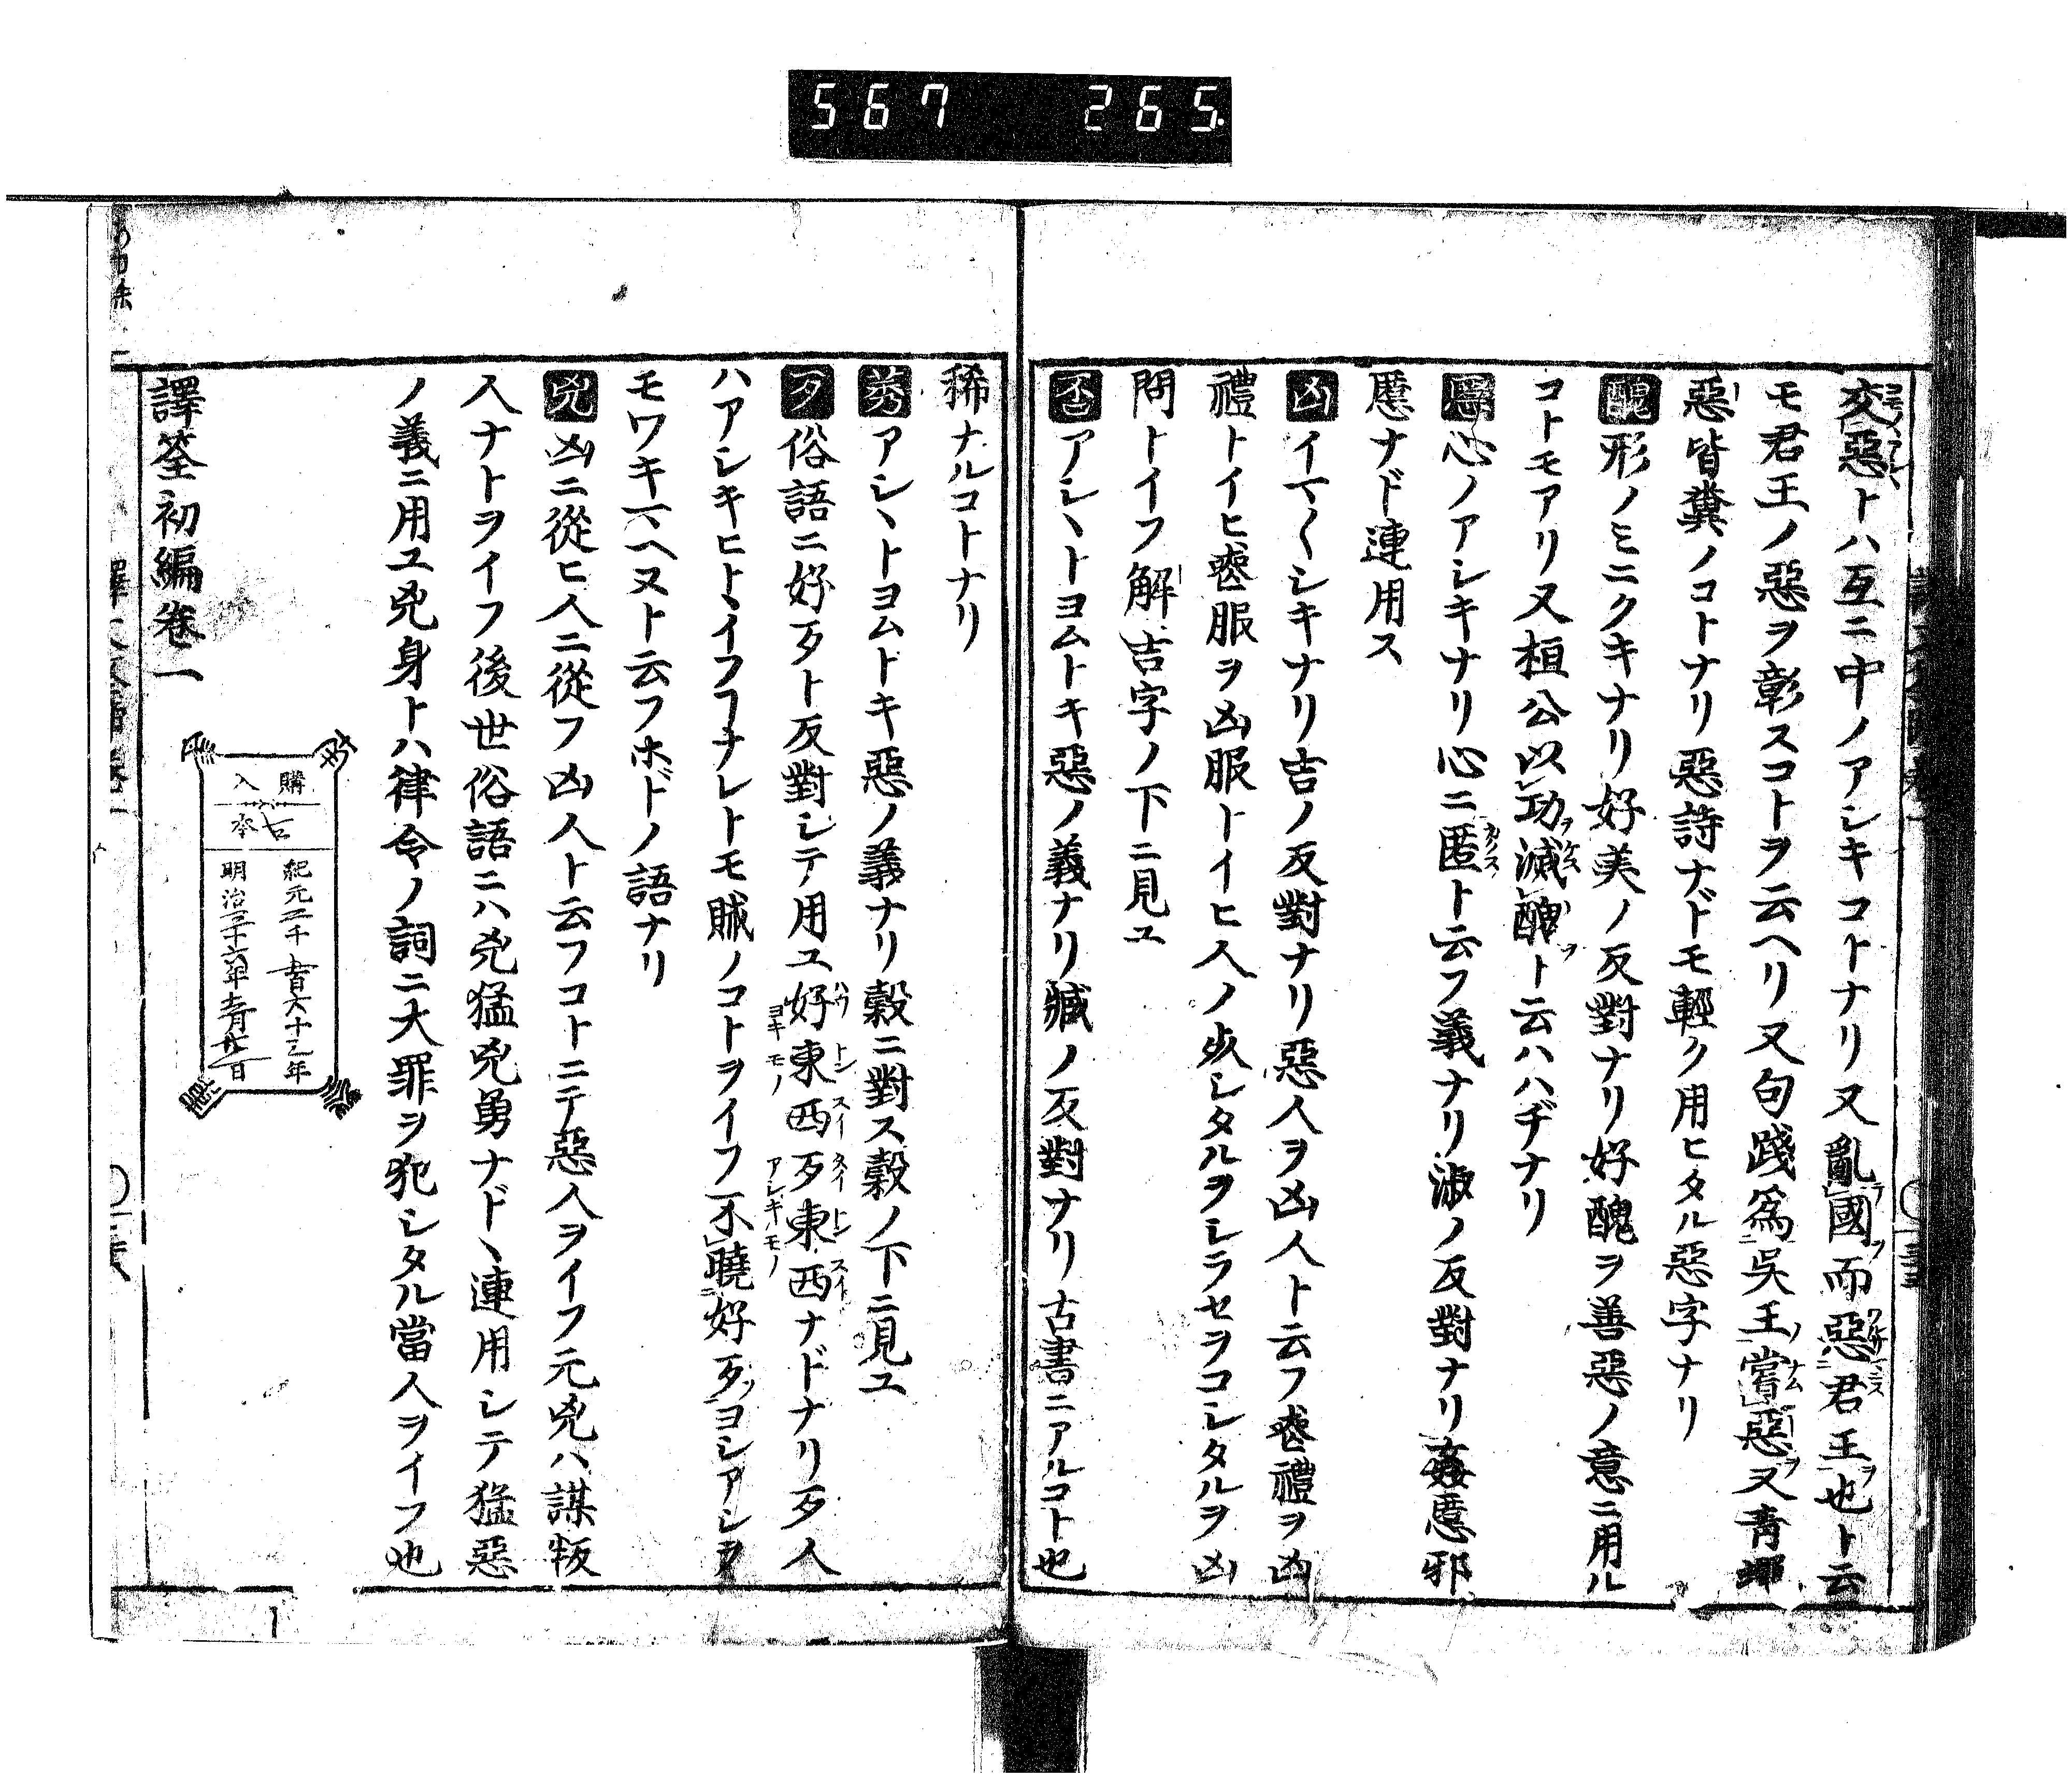 567 265.
交惡トハ互ニ中ノアシキコトナリ又亂國而惡君王也ト云
モ君王ノ惡ヲ彰スコトヲ云ヘリ又句踐爲吳王嘗惡又靑蠅
惡皆糞ノコトナリ惡詩ナドモ輕ク用ヒタル惡字ナリ
醜形ノミニクキナリ好美ノ反對ナリ好醜ヲ善惡ノ意ニ用ル
コトモアリ又桓公以功滅醜ト云ハハヂナリ
慝心ノアシキナリ心ニ匿ト云フ義ナリ淑ノ反對ナリ姦慝邪
慝ナド連用ス
凶イマ〱シキナリ吉ノ反對ナリ惡人ヲ凶人ト云フ喪禮ヲ凶
禮トイヒ喪服ヲ凶服トイヒ人ノ死シタルヲシラセヲコシタルヲ凶
問トイフ解吉字ノ下ニ見ユ
否アシヽトヨムトキ惡ノ義ナリ臧ノ反對ナリ古書ニアルコト也
稀ナルコトナリ
莠アシヽトヨムトキ惡ノ義ナリ穀ニ對ス穀ノ下ニ見ユ
歹俗語ニ好歹ト反對シテ用ユ好東西歹東西ナドナリ歹人
ハアシキヒトヽイフヿナレトモ賊ノコトヲイフ不曉好歹ヨシアシヲ
モワキマヘヌト云フホドノ語ナリ
兇凶ニ從ヒ人ニ從フ凶人ト云フコトニテ惡人ヲイフ元兇ハ謀叛
人ナトヲイフ後世俗語ニハ兇猛兇勇ナドヽ連用シテ猛惡
ノ義ニ用ユ兇身トハ律令ノ詞ニ大罪ヲ犯シタル當人ヲイフ也
譯筌初編卷一
購入
古本
紀元二千五百六十三年
明治三十六年